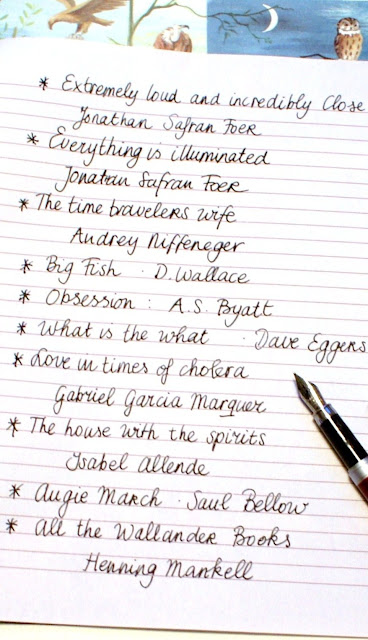 * Extremely loud and incredibly Close
Jonathan Safran Foer
* Everything is illuminated
Jonatran Safran Foer
* The time travelers wife
Audrey Niffeneger
* Big Fish · D. Wallace
* Obsession : A.S. Byatt
* What is the what · Dave Eggers
* Love in times of cholera
Gabriel Garcia Marquer
* The house with the spirits
Isabel Allende
* Augie March · Saul Bellow
* All the Wallander Books
Henning Mankell